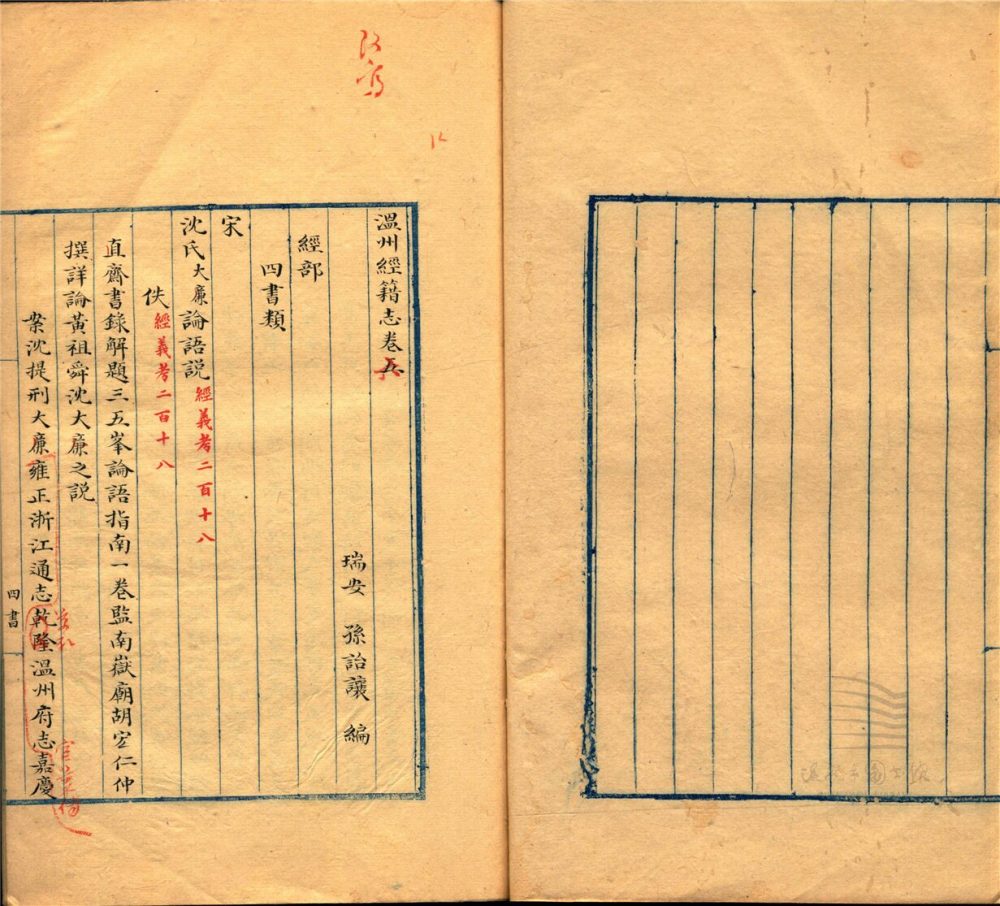 溫州經籍志卷五
六
瑞安 孫詒讓 編
經部
四書類
宋
沈氏大廉論語說經義考二百十八
佚經義考二百十八
直齋書錄解題三五峯論語指南一卷監南嶽廟胡宏仁仲
撰詳論黃祖舜沈大廉之說
案沈提刑大廉雍正浙江通志乾隆溫州府志嘉慶
四書